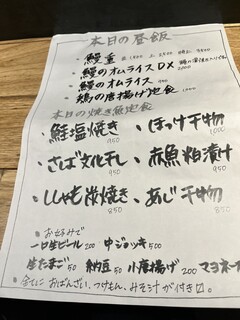 本日の昼飯
・鰻重
・鰻のオムライスDX
・鰻のオムライス 950
・鶏の唐揚げ定食
本日の焼き魚定食
・鮭塩焼き 950
・ほっけ干物 1,000
・さば文化干し 950
・赤魚粕漬け 950
・ししゃも炭焼き 850
・あじ干物 850
お好みで
一口生ビール200 中ジョッキ500
生たまご50 納豆50 小唐揚げ200 マヨネーズ
全てに おばんざい、つけもん、みそ汁が付き〼。